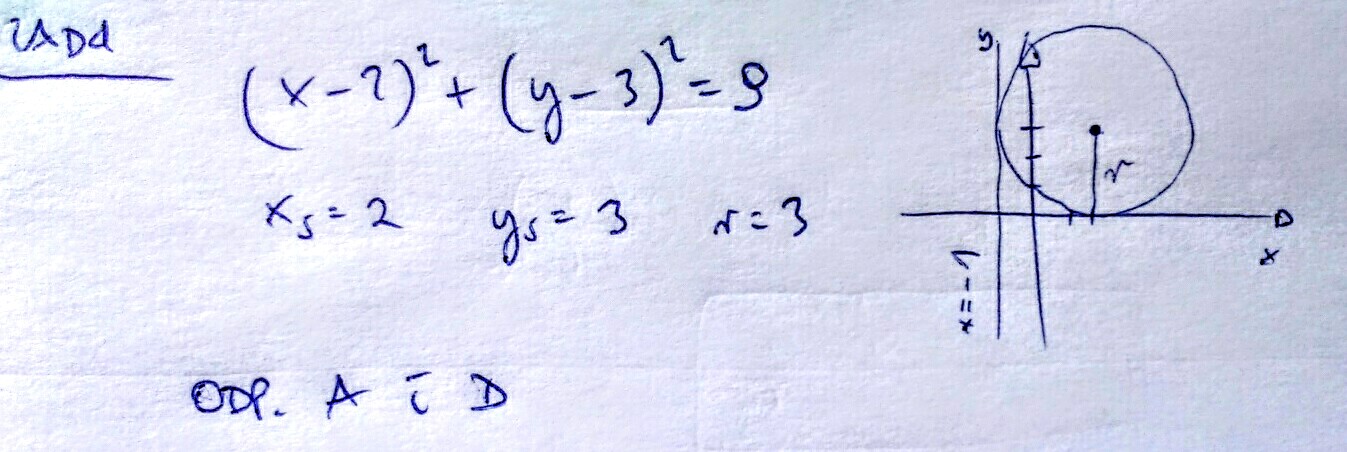 (x-2)²+(y-3)²=9
x_s=2 y_s=3 r=3
ODP. A i D
y
r
x
x=-1